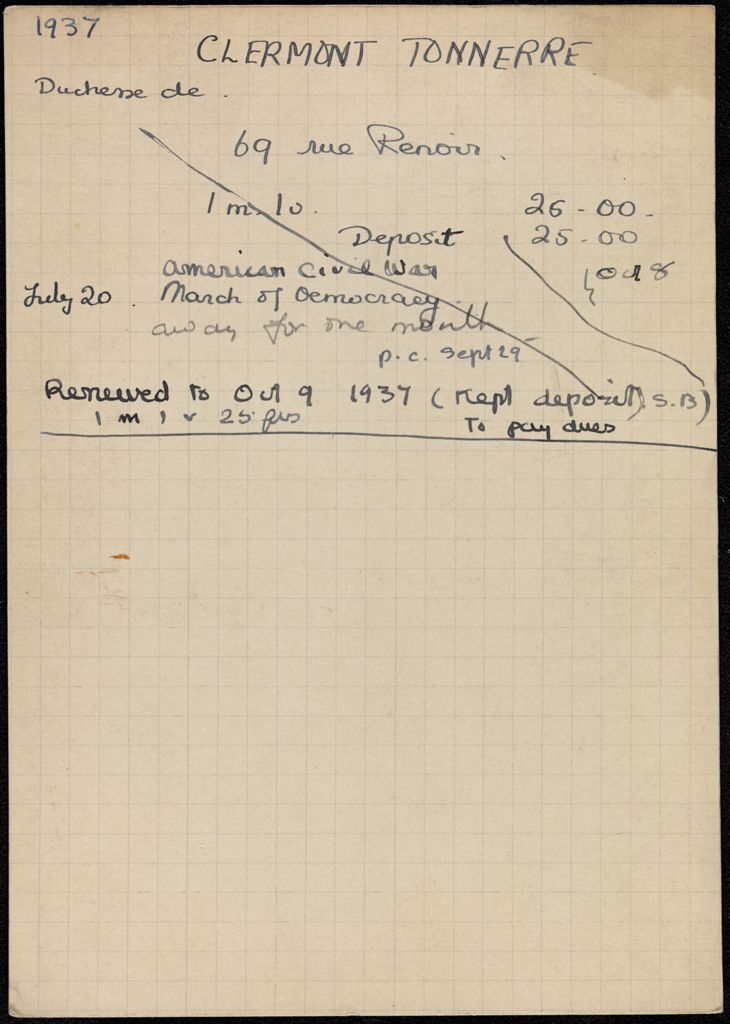 1937
CLERMONT TONNERRE
Duchesse de .
69 rue Renoir .
1 m. 1v. 26-00-
Deposit 25-00
American Civil War
July 20 . March of Democracy . } Oct 8
away for one month -
p.c. Sept 29
Renewed to Oct 9 1937 (Kept deposit). S.B)
1 m 1 v 25 frs To pay dues